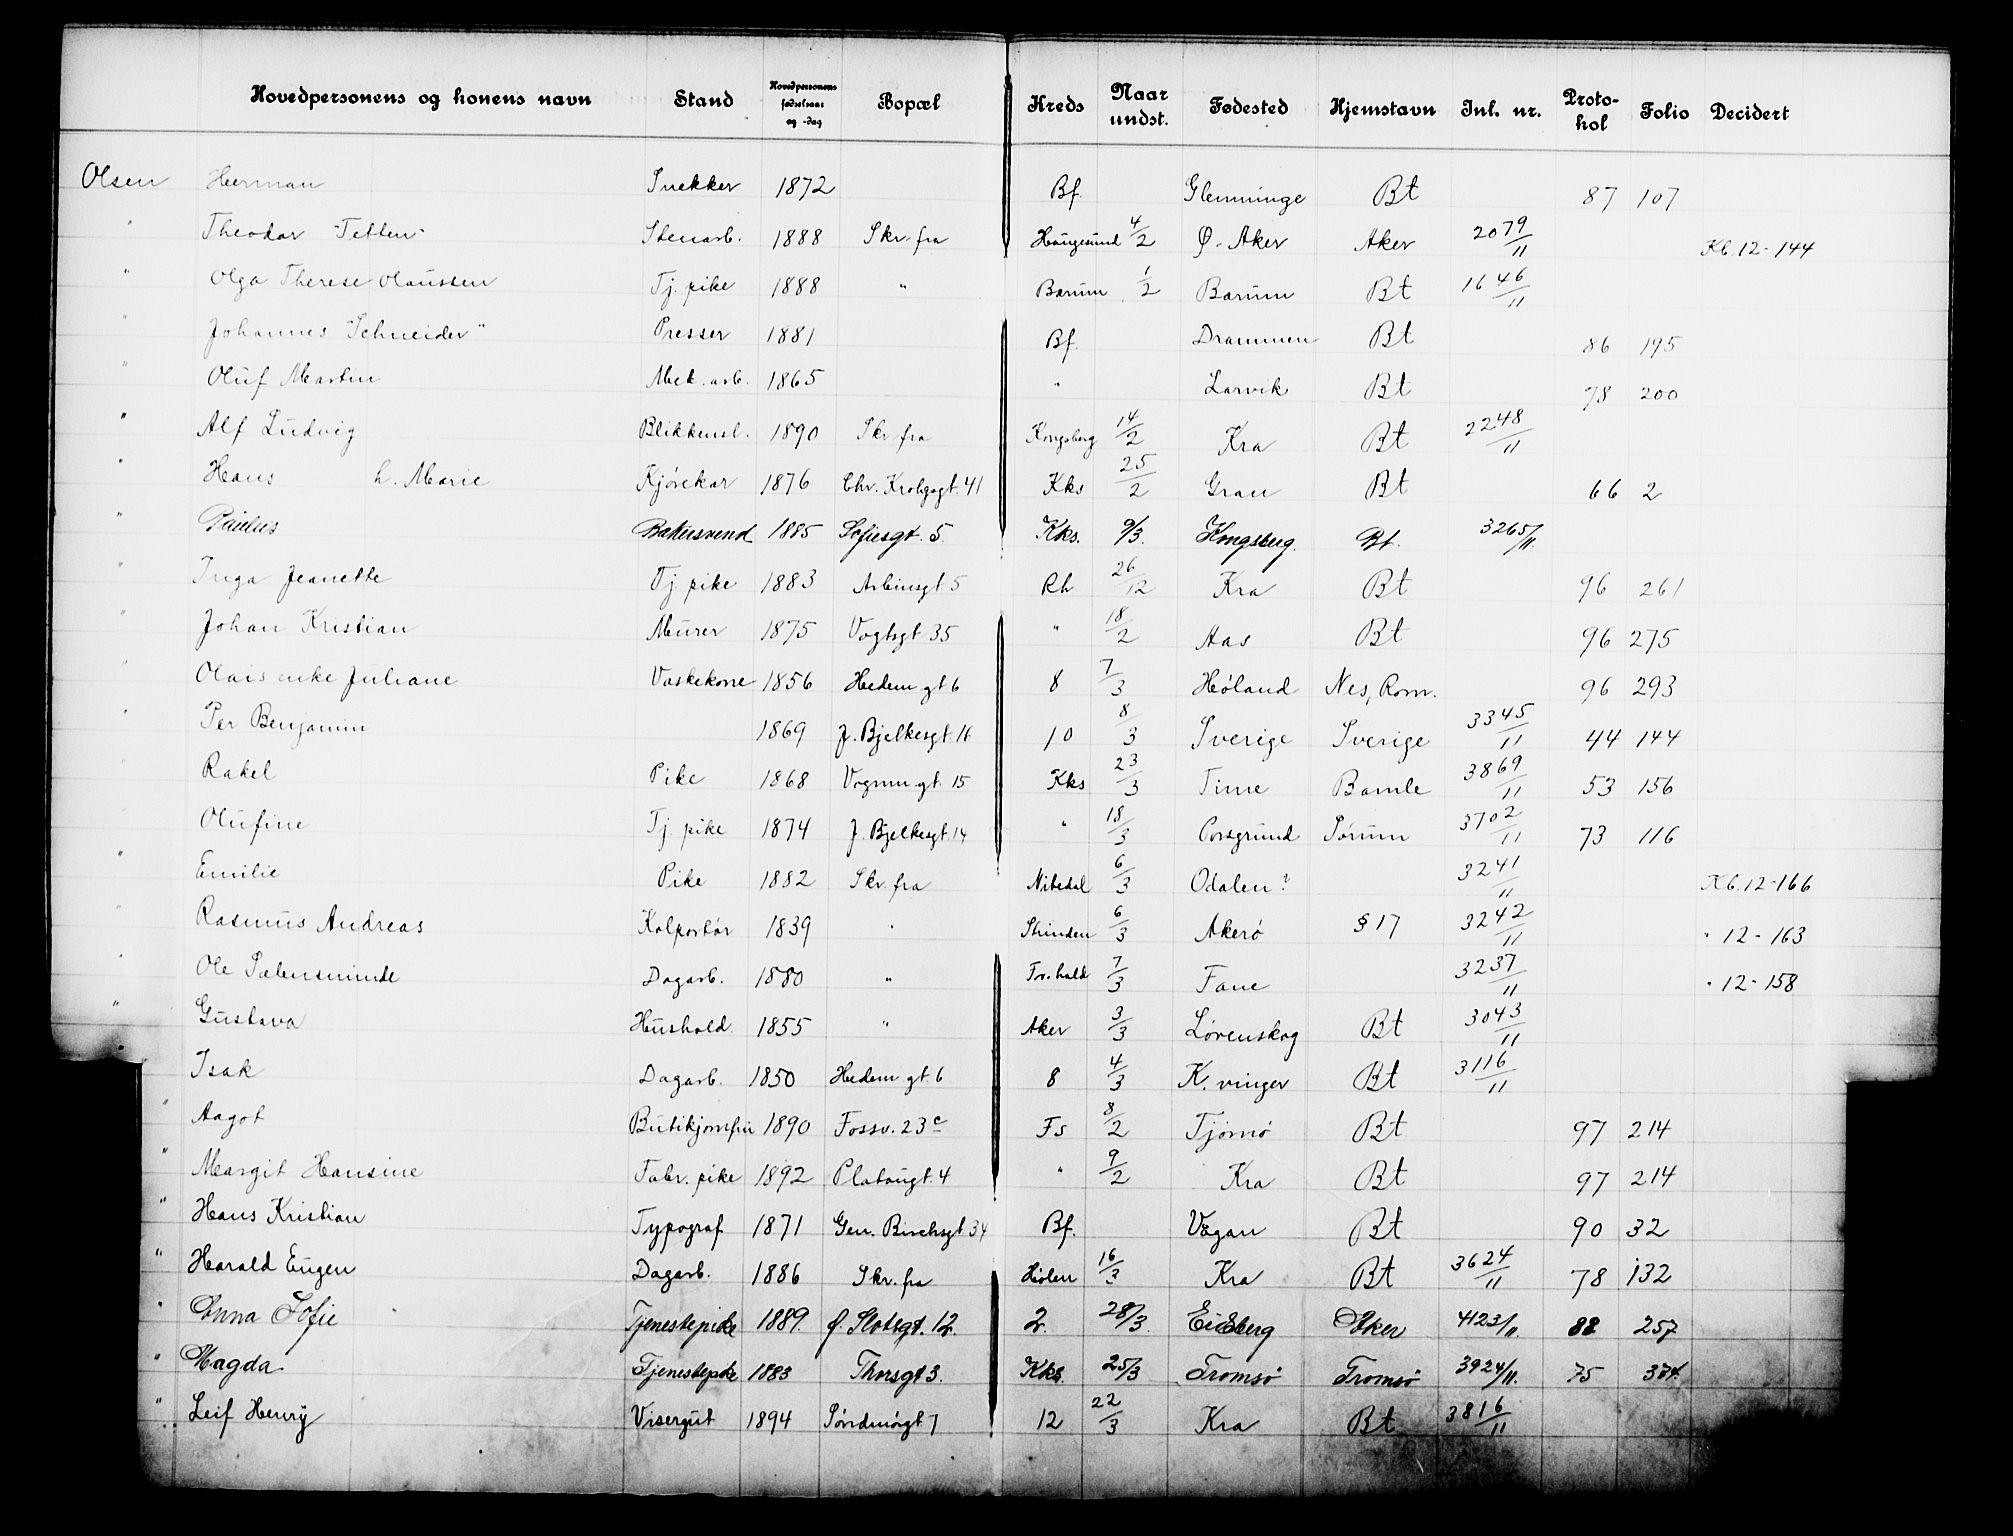 Hovedpersonens og konens navn Stand Hovedpersonens fødselsaar og -dag Bopæl Kreds Naar undst. Fødested Hjemstavn Inl. nr. Proto- kol Folio Decidert
Olsen Herman Snekker 1872 Bf. Glemminge Bt 87 107
" Theodor "Tetten" Stenarb. 1888 Skr. fra Haugesund 4/2 Ø. Aker Aker 2079/11 Kb. 12 - 144
" Olga Therese Olaussen Tj. pike 1888 " Bærum 1/2 Bærum Bt 1646/11
" Johannes "Schneider" Presser 1881 Bf. Drammen Bt 86 195
" Oluf Martin Mek. arb. 1865 " Larvik Bt 78 200
" Alf Ludvig Blikkensl. 1890 Skr. fra Kongsberg 14/2 Kra Bt 2248/11
" Hans h. Marie Kjørekar 1876 Chr. Krohgsgt. 41 Kks 25/2 Gran Bt 66 2
" Paulus Bakersvend 1885 Sofiesgt. 5 Kks. 9/3. Kongsberg. Bt. 3265/11.
" Inga Jeanette Tj. pike 1883 Arbinsgt 5 Rh 26/12 Kra Bt 96 261
" Johan Kristian Murer 1875 Vogtsgt 35 " 18/2 Aas Bt 96 275
" Olais enke Juliane Vaskekone 1856 Hedem. gt 6 8 7/3 Høland Nes, Rom. 96 293
" Per Benjamin 1869 J. Bjelkesgt 16 10 8/3 Sverige Sverige 3345/11 44 144
Rakel Pike 1868 Vognm. gt. 15 Kks 23/3 Time Bamle 3869/11 53 156
Olufine Tj. pike 1874 J. Bjelkesgt. 14 " 18/3 Porsgrund Sørum 3702/11 73 116
" Emilie Pike 1882 Skr. fra Nitedal 6/3 Odalen? 3241/11 Kb. 12 - 166
" Rasmus Andreas Kolportør 1839 " Strinden 6/3 Akerø § 17 3242/11 " 12 - 163
" Ole Sælensminde Dagarb. 1880 " Fr. hald 7/3 Fane 3237/11 " 12 - 158
" Gustava Hushold. 1855 " Aker 3/3 Lørenskog Bt 3043/11
" Isak Dagarb. 1850 Hedem. gt. 6 8 4/3 K. vinger Bt 3116/11
" Aagot Butikjomfru 1890 Fossv. 23 c Fs 8/2 Tjømø Bt 97 214
" Margit Hansine Fabr. pike 1892 Platougt. 4 " 9/2 Kra Bt 97 214
" Hans Kristian Typograf 1871 Gen. Birchsgt 34 Bf. Vågan Bt 90 32
" Harald Eugen Dagarb. 1886 Skr. fra Hølen 16/3 Kra Bt 3624/11 78 132
" Anna Sofie Tjenestepike 1889. f. Slotsgt. 12. 2. 28/3. Eidsberg Aker 4123/11. 88 257
" Magda. Tjenestepike 1883 Thorsgt 3. Kks. 25/3 Tromsø Tromsø 3924/11. 75 374.
" Leif Henry Visergut 1894 Søndmørgt 7 12 22/3 Kra Bt 3816/11